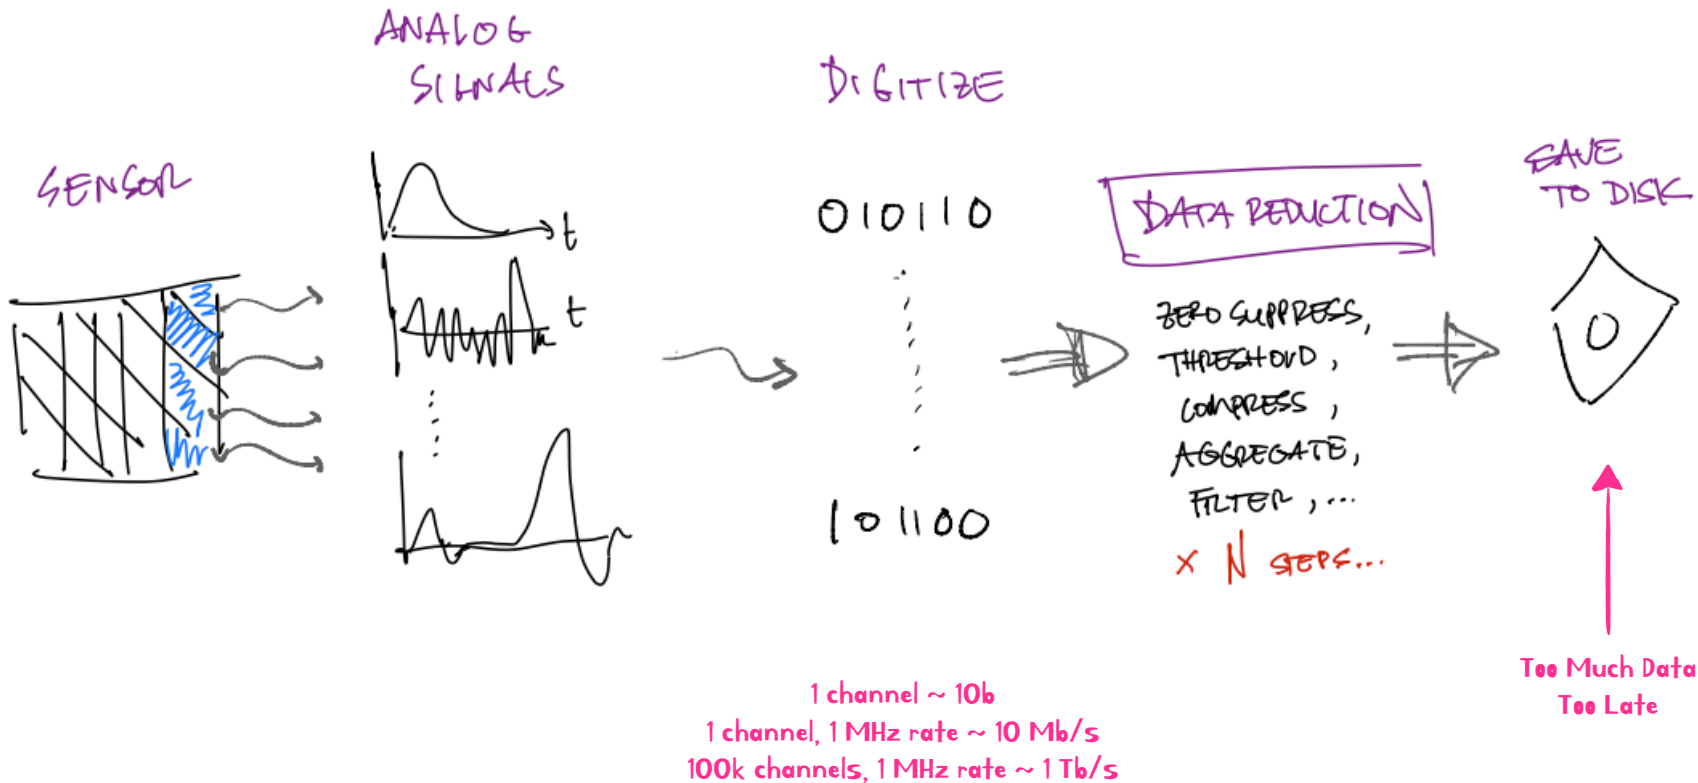 SENSOR
ANALOG
SIGNALS
t
t
DIGITIZE
010110
101100
DATA REDUCTION
ZERO SUPPRESS,
THRESHOLD,
COMPRESS,
AGGREGATE,
FILTER, ...
x N STEPS...
SAVE
TO DISK
0
Too Much Data
Too Late
1 channel ~ 10b
1 channel, 1 MHz rate ~ 10 Mb/s
100k channels, 1 MHz rate ~ 1 Tb/s